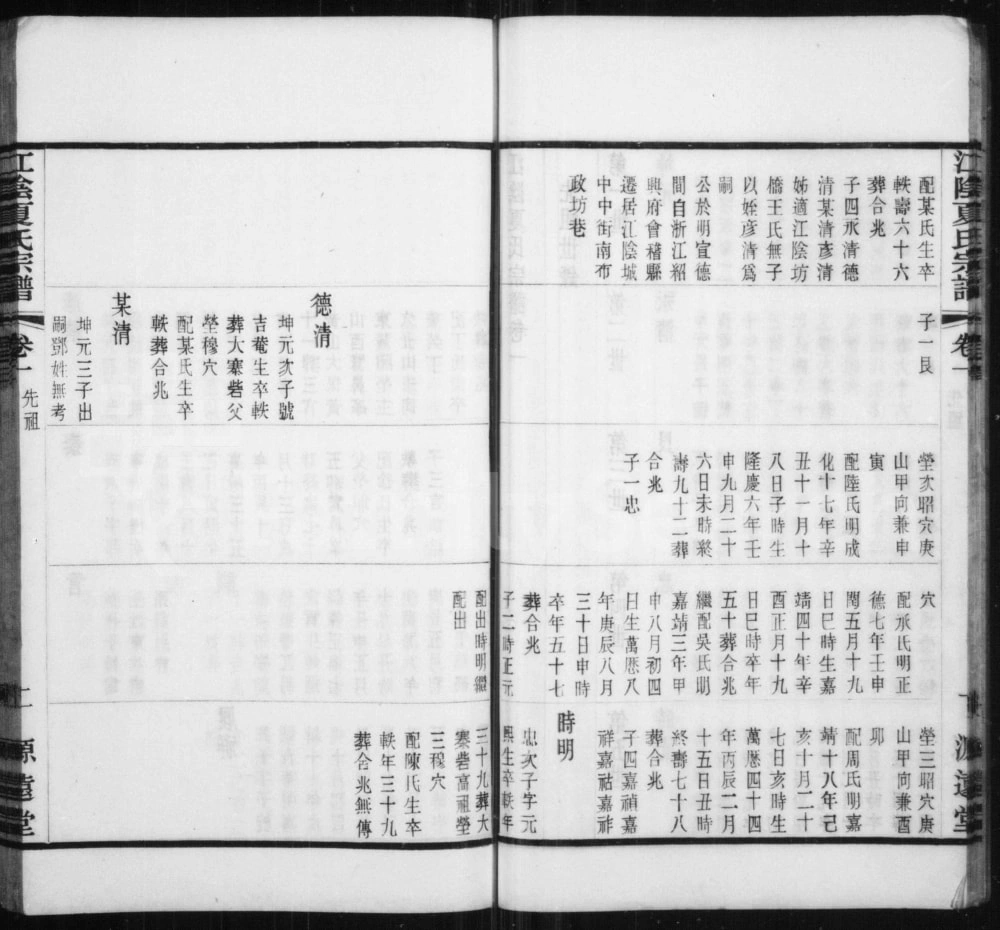 江陰夏氏宗譜
卷一
先祖
源遠堂
配某氏生卒
軼壽六十六
葬合兆
子四永清德
清某清彥清
姊適江陰坊
橋王氏無子
以姪彥清爲
嗣
公於明宣德
間自浙江紹
興府會稽縣
遷居江陰城
中中街南布
政坊巷
子一艮
塋次昭穴庚
山甲向兼申
寅
配陸氏明成
化十七年辛
丑十一月十
八日子時生
隆慶六年壬
申九月二十
六日未時終
壽九十二葬
合兆
子一忠
穴
配承氏明正
德七年壬申
閏五月十九
日巳時生嘉
靖四十年辛
酉正月十九
日巳時卒年
五十葬合兆
繼配吳氏明
嘉靖三年甲
申八月初四
日生萬厯八
年庚辰八月
三十日申時
卒年五十七
葬合兆
子二時正元
配出時明繼
配出
塋三昭穴庚
山甲向兼酉
卯
配周氏明嘉
靖十八年己
亥十月二十
七日亥時生
萬厯四十四
年丙辰二月
十五日丑時
終壽七十八
葬合兆
子四嘉禎嘉
祥嘉祜嘉祚
時明
忠次子字元
熙生卒軼年
三十九葬大
寨砦高祖塋
三穆穴
配陳氏生卒
軼年三十九
葬合兆無傳
德清
坤元次子號
吉菴生卒軼
葬大寨砦父
塋穆穴
配某氏生卒
軼葬合兆
某清
坤元三子出
嗣鄧姓無考
江陰夏氏宗譜
卷一
先祖
源遠堂